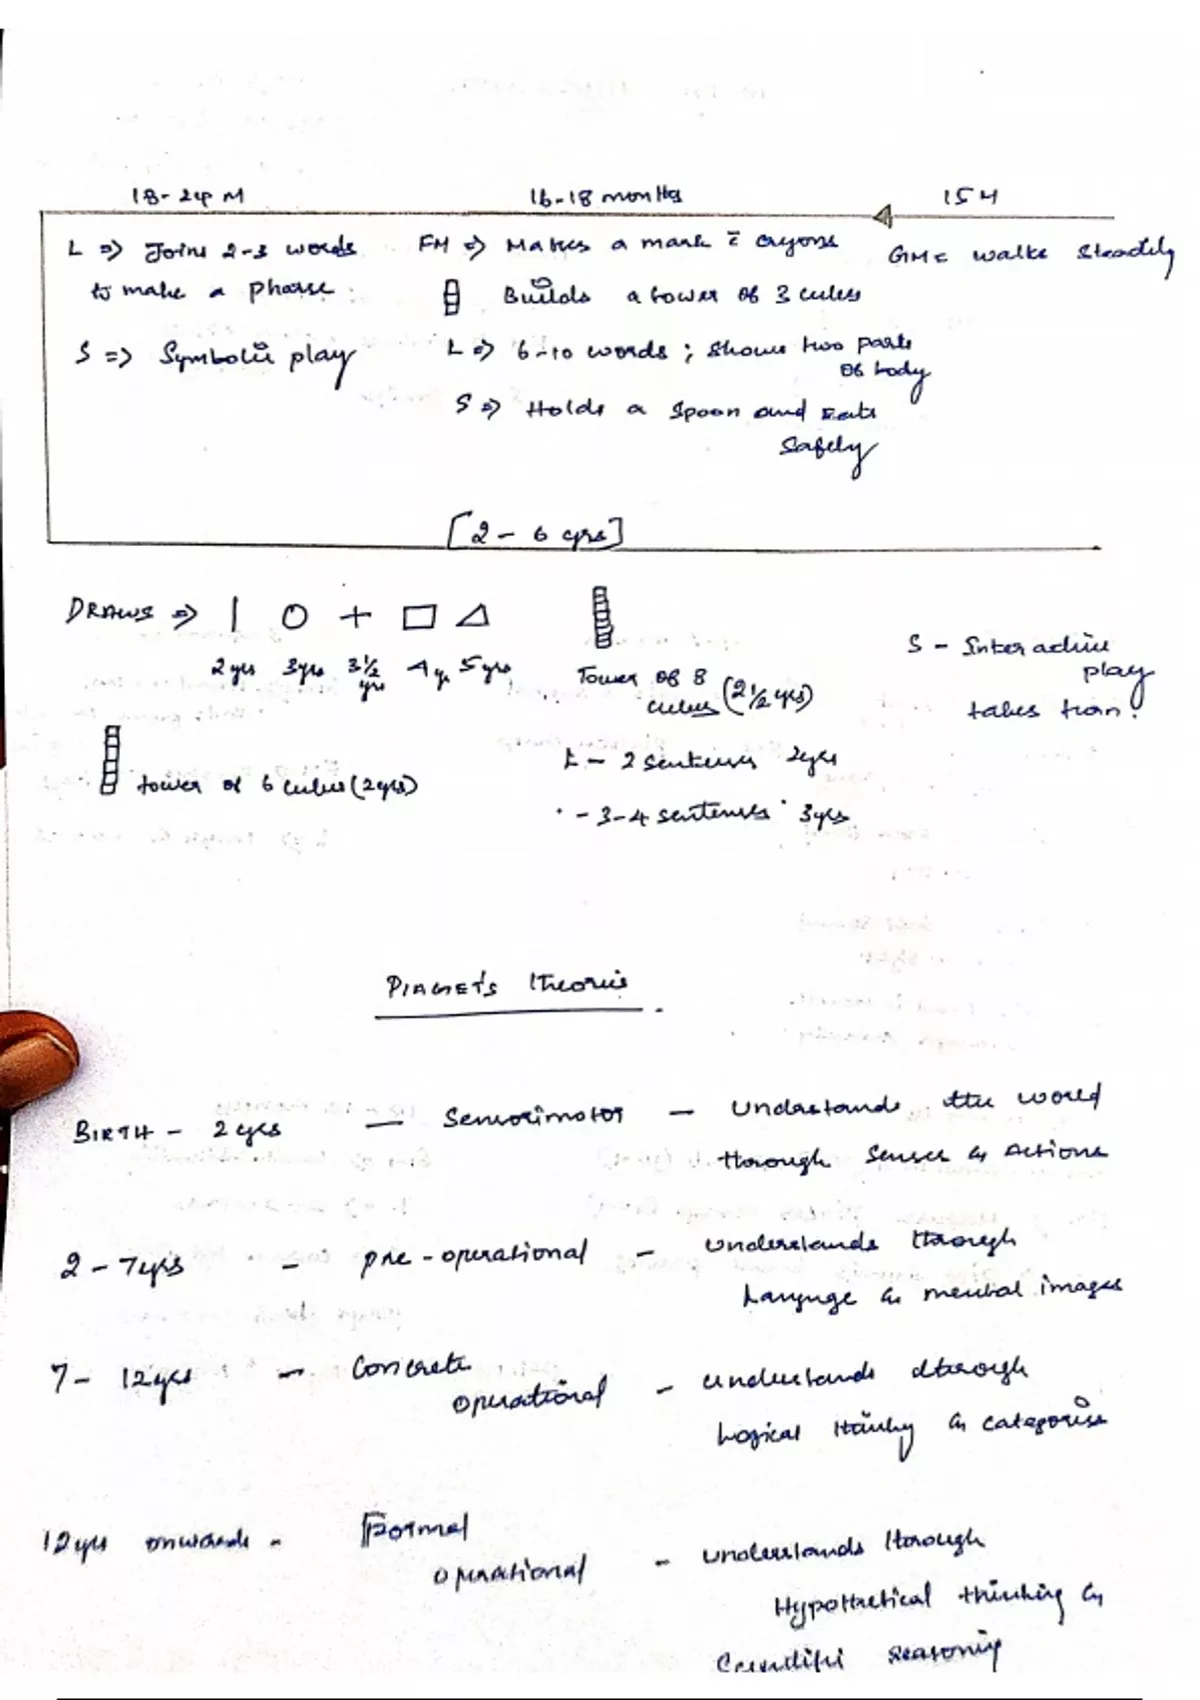 18-24 M 16-18 months 15 M
L => Joins 2-3 words FM => Makes a mark c̄ crayons GM = walks steadily
to make a phrase. Builds a tower of 3 cubes
S => Symbolic play L => 6-10 words ; shows two parts
of body
S => Holds a spoon and eats
safely
[2 - 6 yrs]
DRAWS =>
2 yrs 3yrs 3½ yrs 4 y. 5 yrs Tower of 8
cubes (2½ yrs)
S - Interactive
play
takes turn.
tower of 6 cubes (2yrs)
L - 2 sentences 2yrs
- 3-4 sentences 3yrs
PIAGET'S theories
BIRTH - 2 yrs — Sensorimotor — understands the world
through senses & Actions
2 - 7yrs - pre-operational - understands through
Language & mental images
7 - 12yrs - Concrete
operational - understands through
Logical thinking & categories
12 yrs onwards - Formal
operational - understands through
Hypothetical thinking &
Scientific reasoning